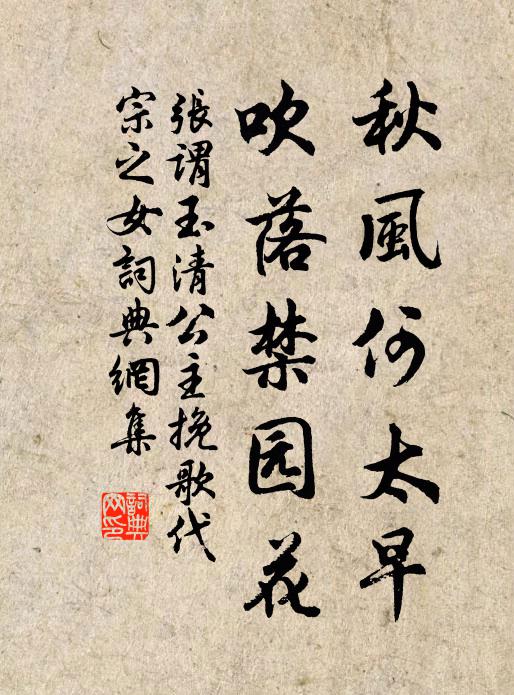 秋風何太早
吹落禁园花
張謂玉清公主挽歌代
宗之女詞典網集
詞典網印